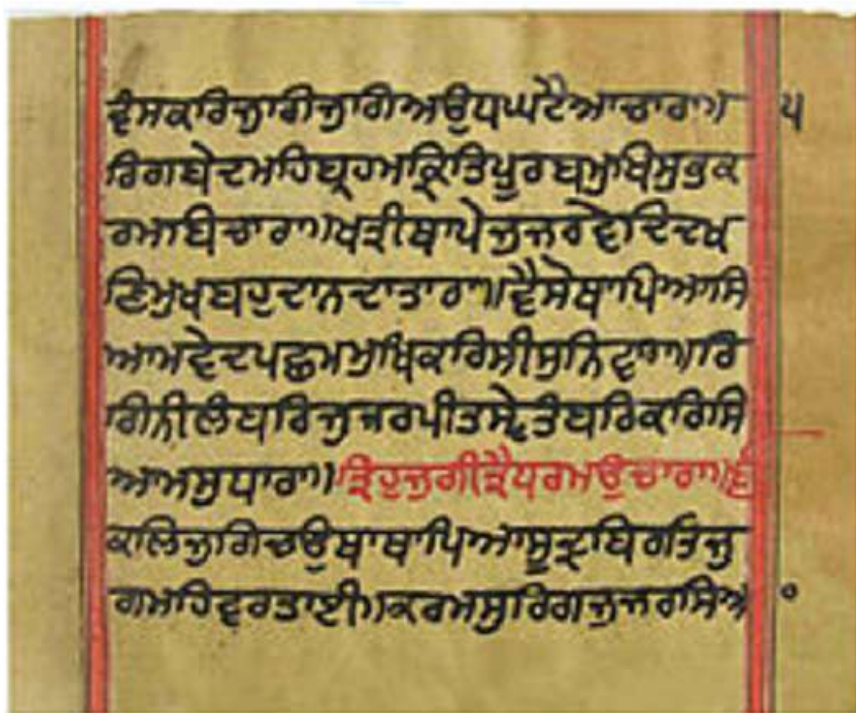 ਵੰਸਕਰਿਜੁਗੀਜੁਗਿਅਉਧਘਟੈਆਚਾਰਾ॥ ੫
ਰਿਗਬੇਦਮਹਿਬ੍ਰਹਮਾਕ੍ਰਿਤਿਪੂਰਬਮੁਖਿਸੁਭਕ
ਰਮਾਬਿਚਾਰਾ॥ਖਤ੍ਰੀਥਾਪੇਜੁਜਰਵੇਦਿਦਖ
ਣਿਮੁਖਬਹੁਦਾਨਦਾਤਾਰਾ॥ਵੈਸੋਥਾਪਿਆਸਿ
ਆਮਵੇਦਪਛਮਮੁਖਿਕਰਿਸੀਸੁਨਿਵਾਰਾ॥ਰਿ
ਗਿਨੀਲੰਬਰਿਜੁਜਰਪੀਤਸ੍ਵੇਤੰਬਰਿਕਰਿਸਿ
ਆਮਸੁਧਾਰਾ॥ਤ੍ਰਿਹੁਜੁਗੀਤ੍ਰੈਧਰਮਉਚਾਰਾ॥੬
ਕਲਿਜੁਗਿਚਉਥਾਥਾਪਿਆਸੂਦ੍ਰਬਿਰਤਿਜੁ
ਗਮਹਿਵਰਤਾਈ॥ਕਰਮਸੁਰਿਗਜੁਜਰਸਿਅ